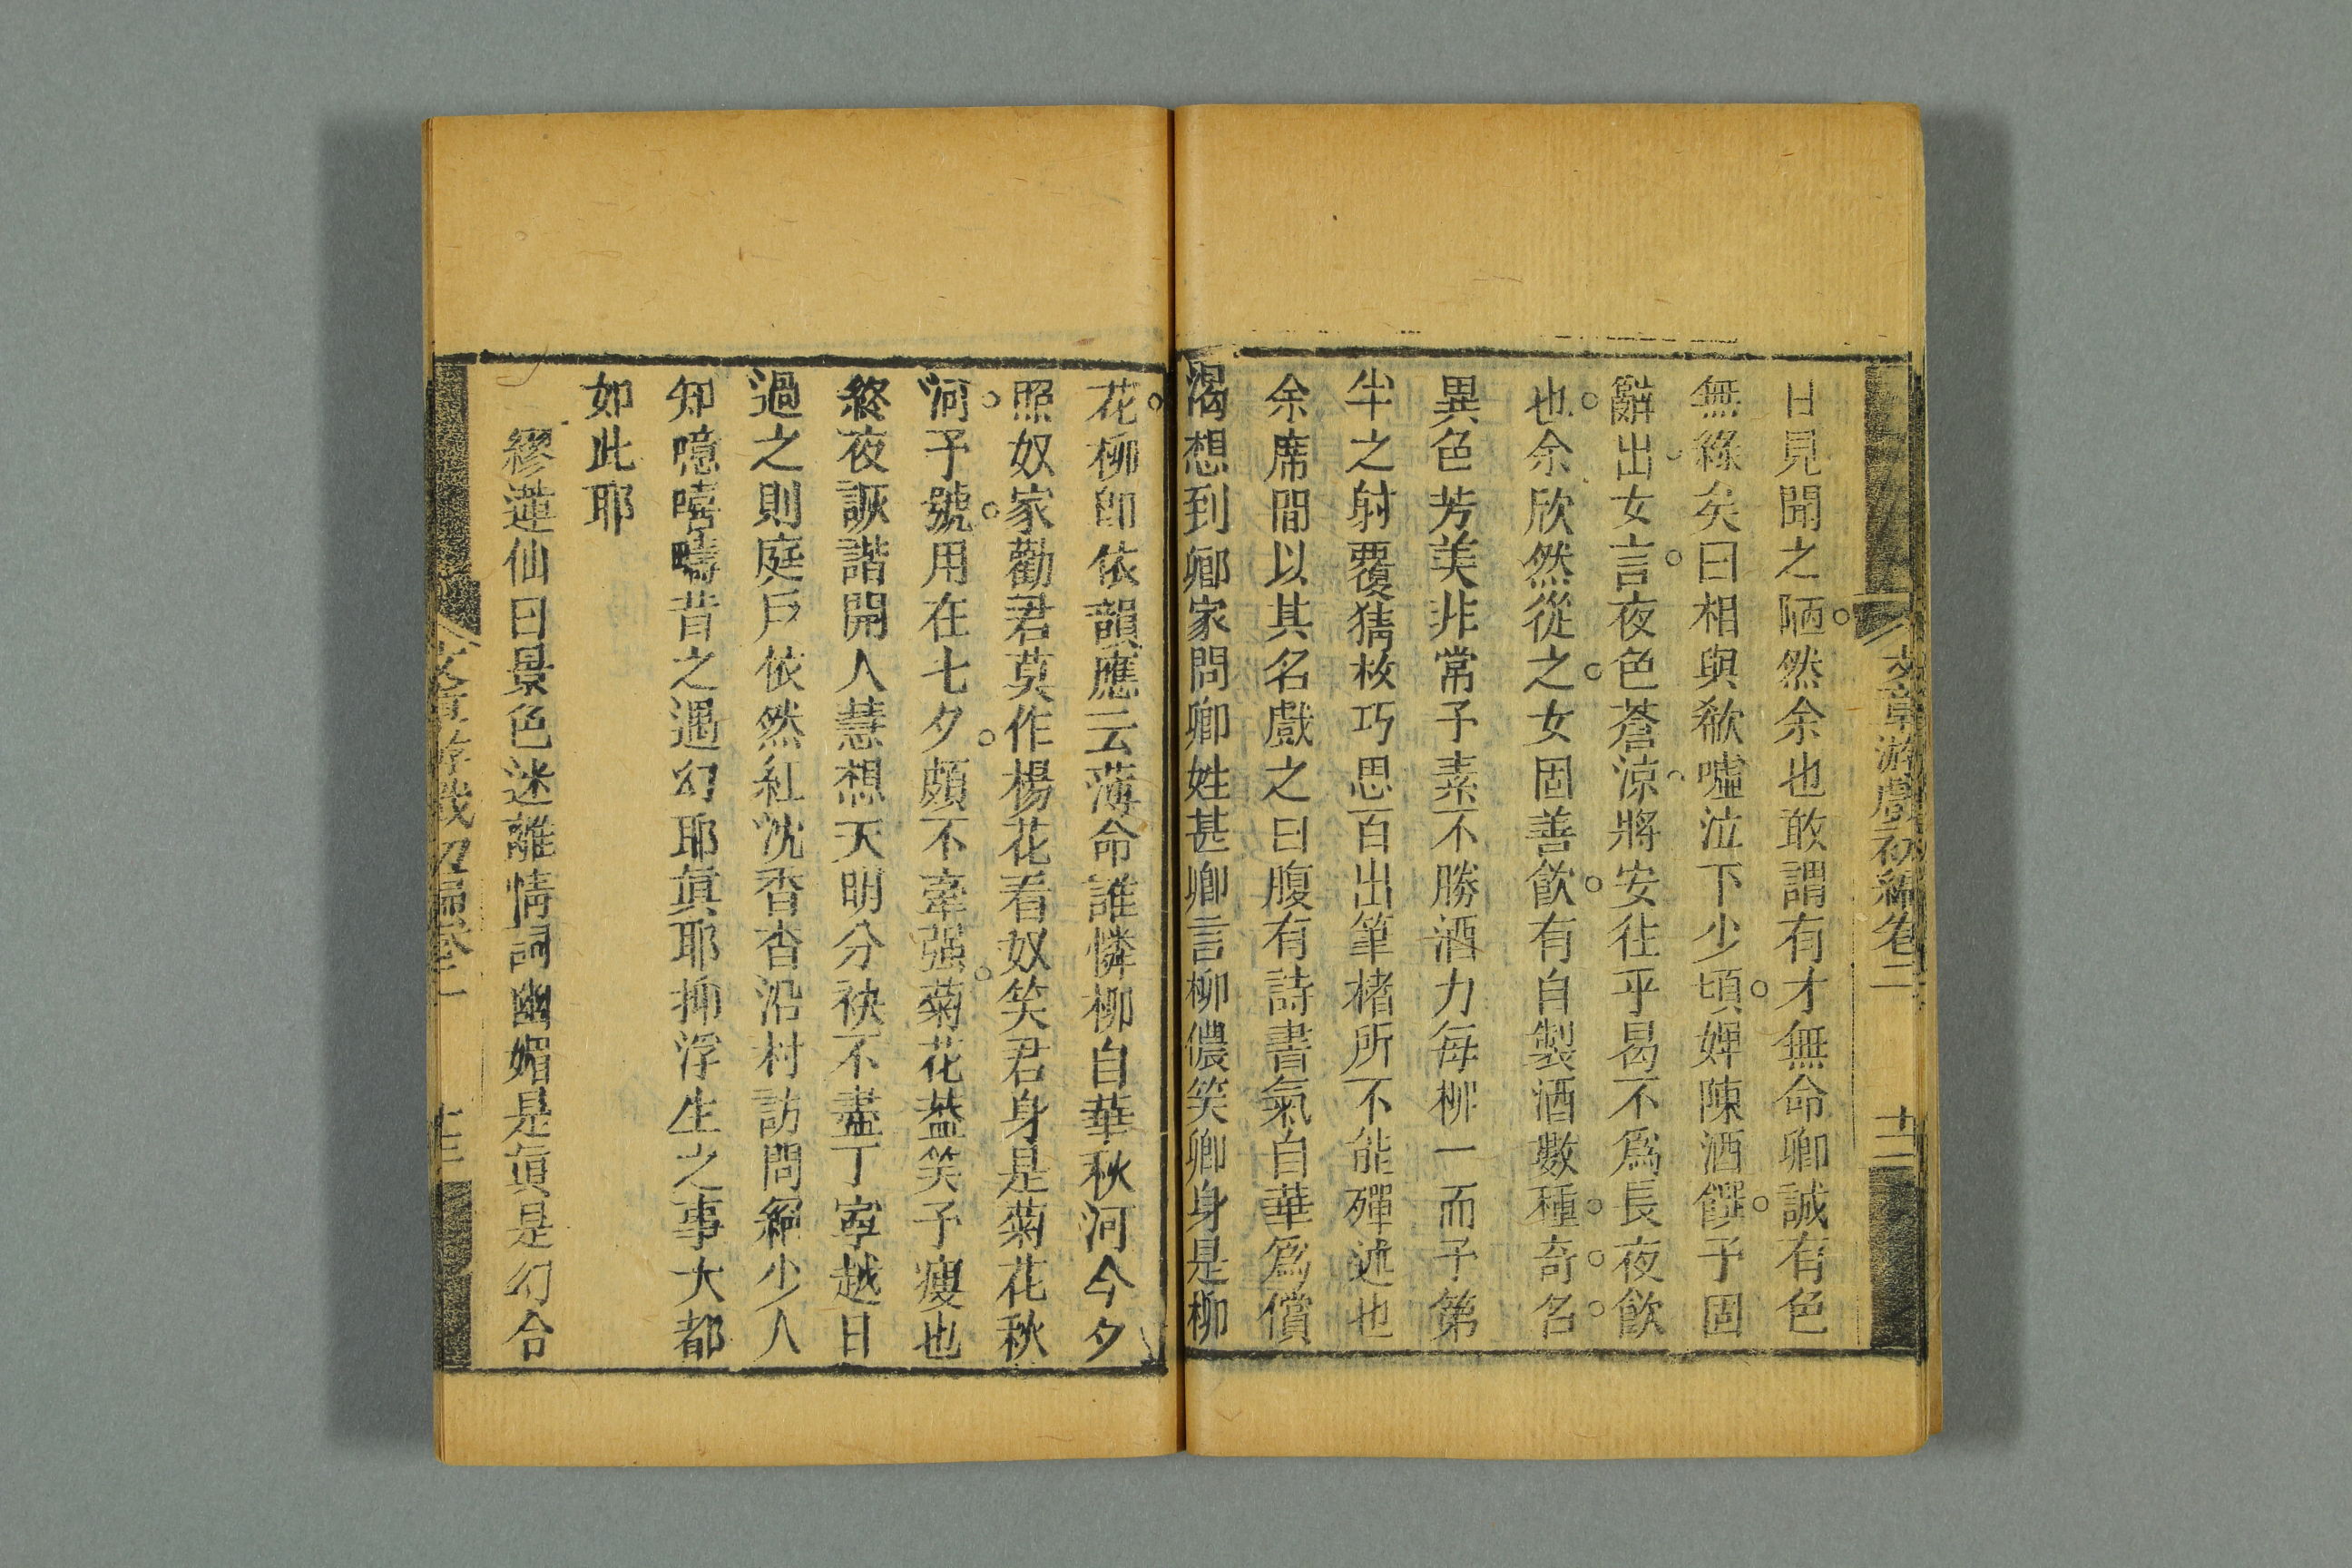 文章游戲初編卷二 十二
日見聞之陋然余也敢謂有才無命卿誠有色
無緣矣曰相與欷噓泣下少頃婢陳酒饌予固
辭出女言夜色蒼涼將安往乎曷不爲長夜飲
也余欣然從之女固善飲有自製酒數種奇名
異色芳美非常予素不勝酒力每柳一而予第
半之射覆猜枚巧思百出筆楮所不能殫述也
余席間以其名戲之曰腹有詩書氣自華爲償
渴想到鄉家問卿姓甚卿言柳儂笑卿身是柳
花柳卽依韻應云薄命誰憐柳自華秋河今夕
照奴家勸君莫作楊花看奴笑君身是菊花秋
河予號用在七夕頗不牽强菊花葢笑予瘦也
終夜詼諧開人慧想天明分袂不盡丁寧越日
過之則庭戶依然紅沈香杳沿村訪問絕少人
知噫嘻疇昔之遇幻耶眞耶抑浮生之事大都
如此耶
繆蓮仙曰景色迷離情詞幽媚是眞是幻合
文章游戲初編卷二 十三